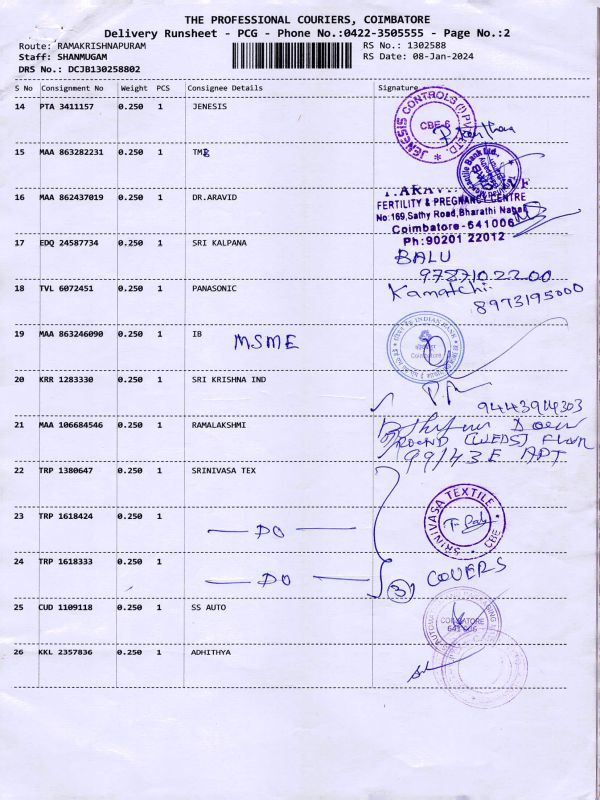 THE PROFESSIONAL COURIERS, COIMBATORE
Delivery Runsheet - PCG - Phone No.:0422-3505555 - Page No.:2
Route: RAMAKRISHNAPURAM
Staff: SHANMUGAM
DRS No.: DCJB130258802
RS No.: 1302588
RS Date: 08-Jan-2024
S No Consignment No Weight PCS Consignee Details Signature
14 PTA 3411157 0.250 1 JENESIS
JENESIS CONTROLS (I) PVT. LTD.
CBE-6
15 MAA 863282231 0.250 1 TMB
16 MAA 862437019 0.250 1 DR.ARAVID
FERTILITY & PREGNANCY CENTRE
No:169,Sathy Road,Bharathi Nagar
Coimbatore-641006
Ph:90201 22012
17 EDQ 24587734 0.250 1 SRI KALPANA
BALU
9787102200
18 TVL 6072451 0.250 1 PANASONIC
Kamatchi
8973195000
19 MAA 863246090 0.250 1 IB
MSME
INDIAN BANK
Coimbatore
20 KRR 1283330 0.250 1 SRI KRISHNA IND
9443914303
21 MAA 106684546 0.250 1 RAMALAKSHMI
99/43E APT
22 TRP 1380647 0.250 1 SRINIVASA TEX
SRINIVASA TEXTILE
CBE
23 TRP 1618424 0.250 1
— DO —
24 TRP 1618333 0.250 1
— DO —
3 COVERS
25 CUD 1109118 0.250 1 SS AUTO
COIMBATORE
641 006
26 KKL 2357836 0.250 1 ADHITHYA